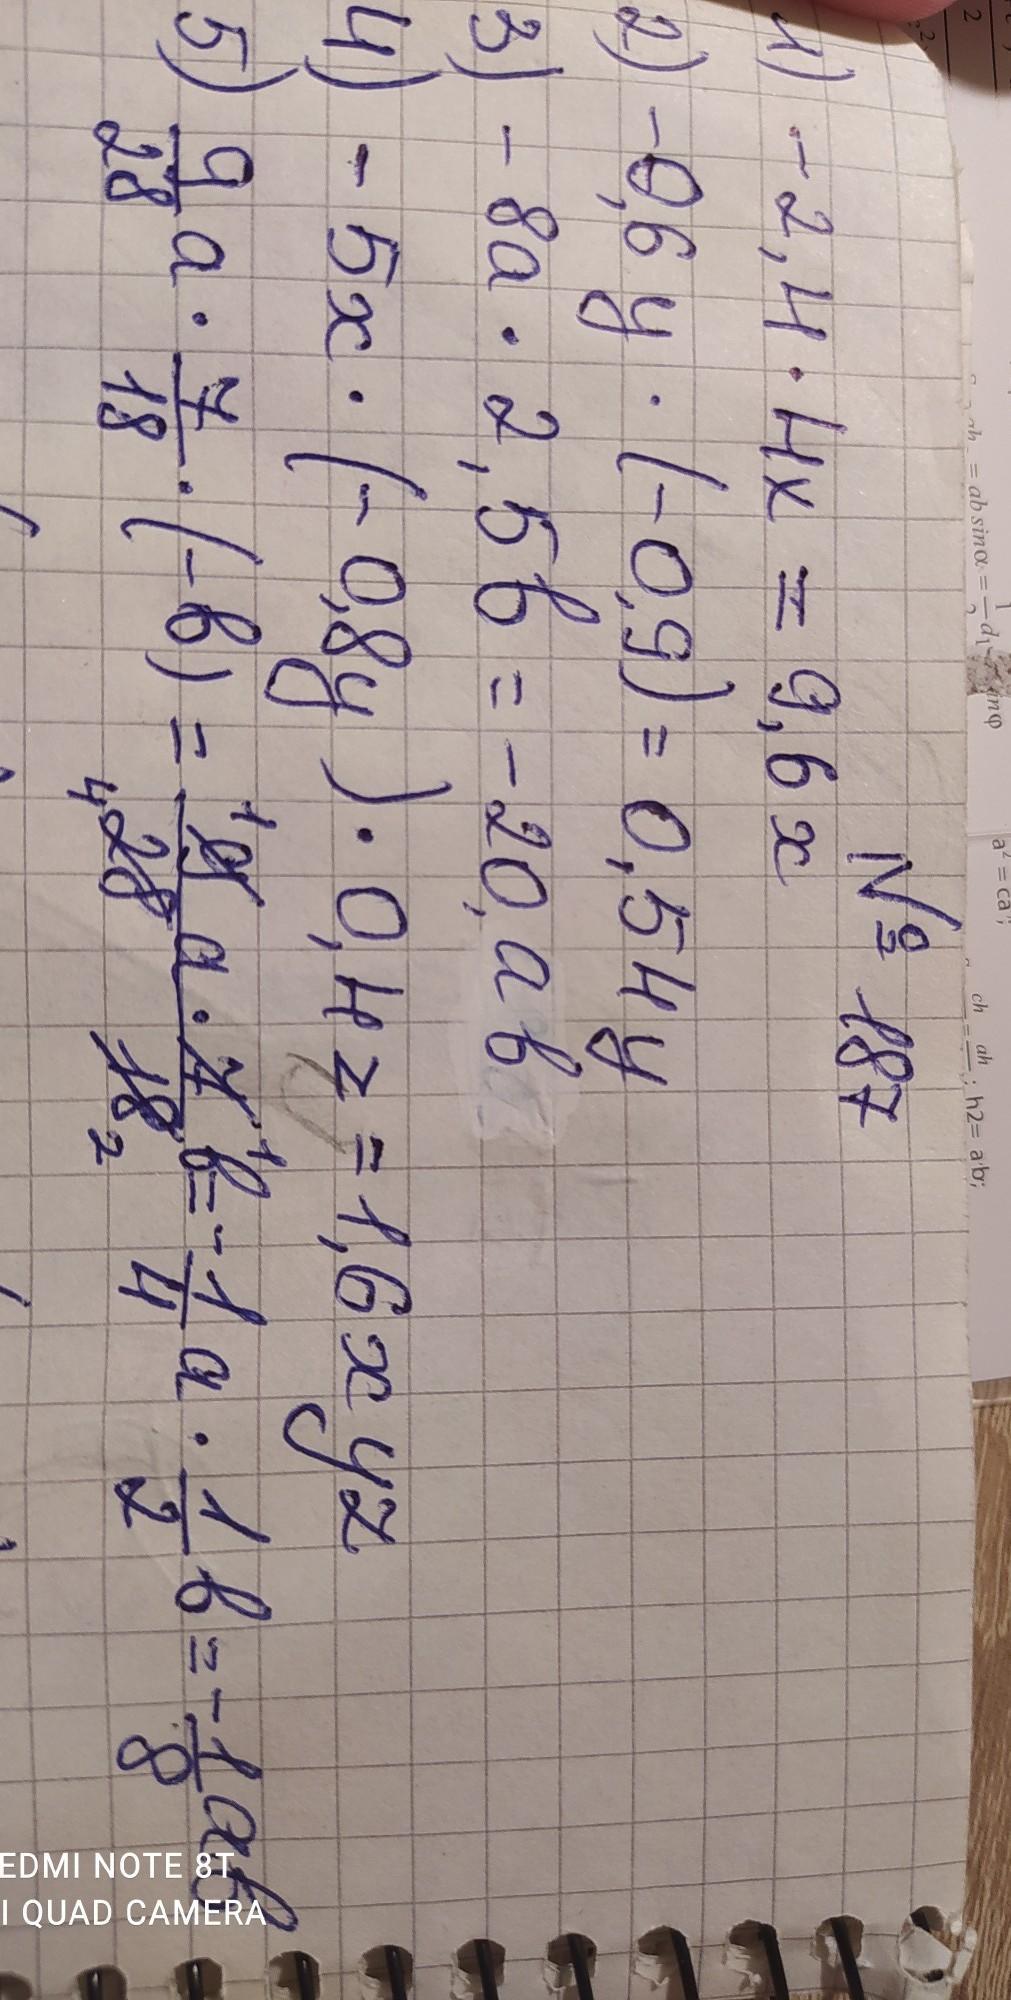 № 187
1) -2,4 · 4x = 9,6x
2) -0,6y · (-0,9) = 0,54y
3) -8a · 2,5b = -20,ab
4) -5x · (-0,8y) · 0,4z = 1,6xyz
5) 9/28 a · 7/18 · (-b) = 9/28 a · 7/18 b = -1/4 a · 1/2 b = -1/8 ab
1 1
4 2
= ab sinα = 1/2 d₁
inφ
a² = ca';
h2 = a'b';
EDMI NOTE 8T
I QUAD CAMERA